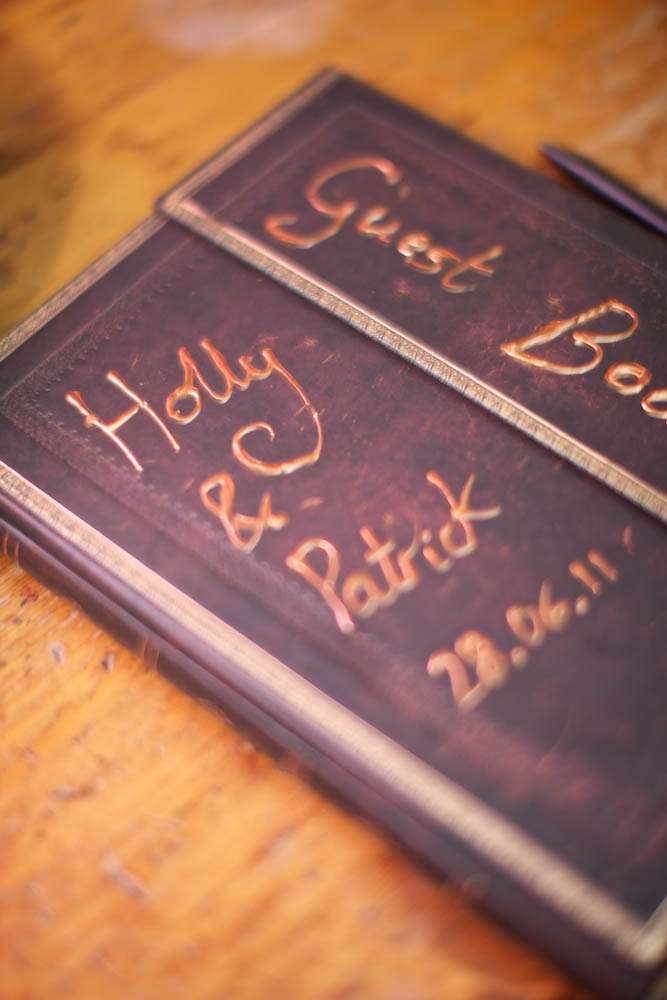 Guest Boo
Holly
&
Patrick
28.06.11